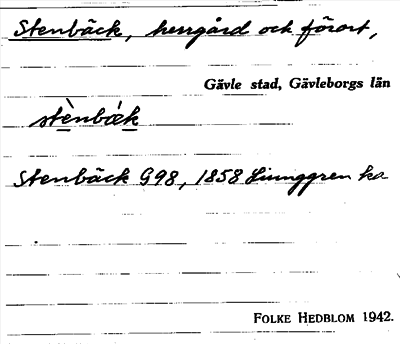 Stenbäck, herrgård och förort,
Gävle stad, Gävleborgs län
stènbák
Stenbäck G98, 1858 Ljunggren ka
FOLKE HEDBLOM 1942.